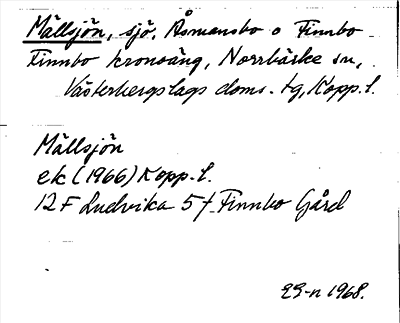 Mällsjön, sjö, Åsmansbo o Finnbo
Finnbo kronoäng, Norrbärke sn,
Västerbergslags doms. tg, Kopp. l.
Mällsjön
ek (1966) Kopp. l.
12 F Ludvika 5 f Finnbo Gård
ES-n 1968.